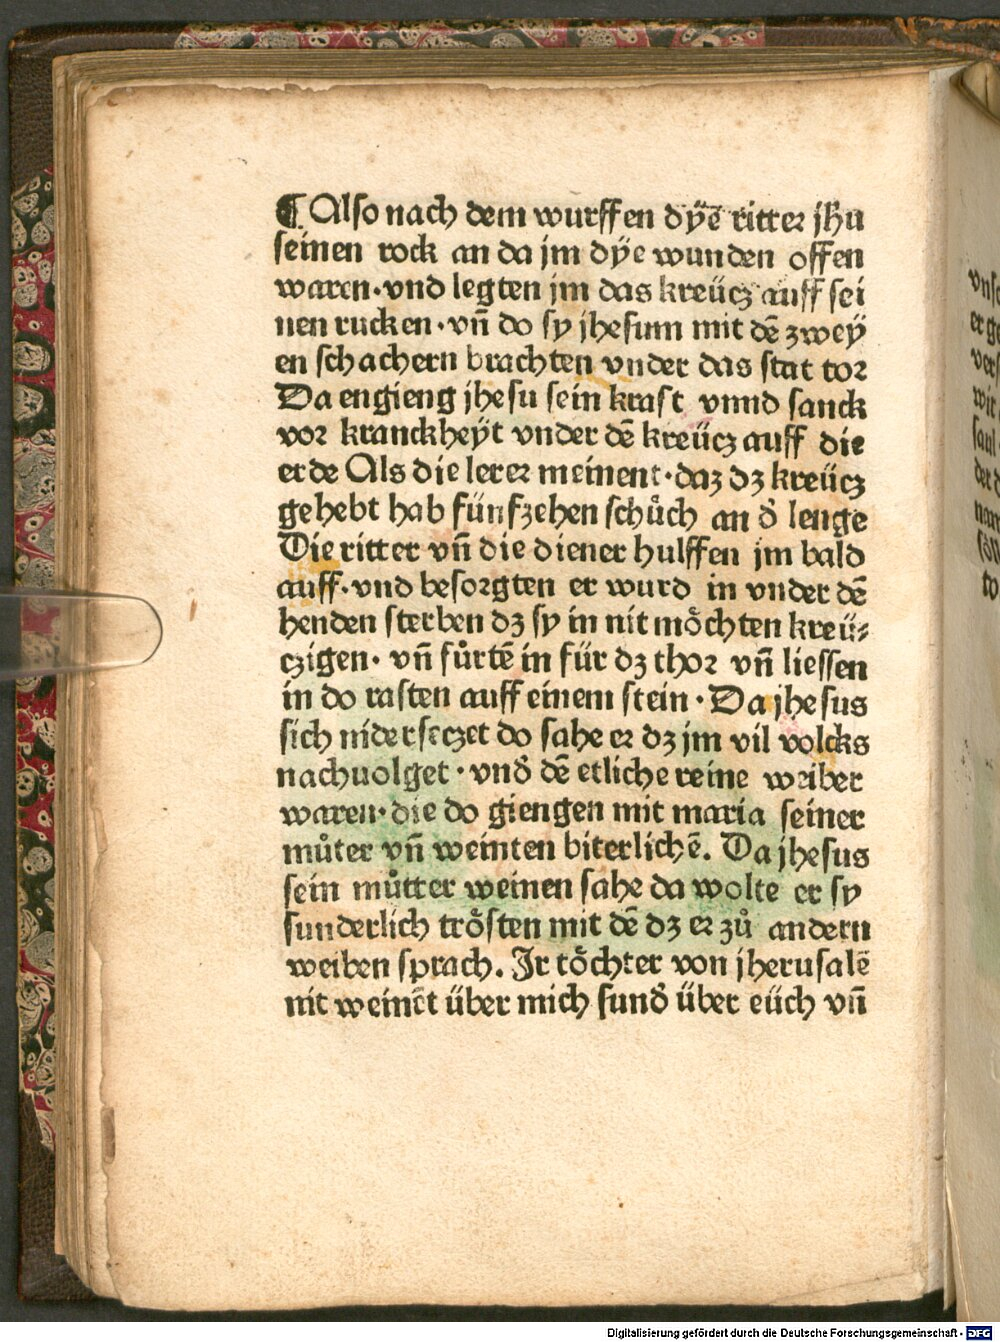 ¶ Also nach dem wurffen dÿe ritter jhu̅
seinen rock an da jm dÿe wunden offen
waren·vnd legten jm das kreücz auff sei
nen rucken·vn̄ do sy jhesum mit dē zweÿ
en schachern brachten vnder das stat tor
Da engieng jhesu sein kraft vnnd sanck
vor kranckheÿt vnder dē kreücz auff die
erde Als die lerer meinent·daz dz kreücz
gehebt hab fünfzehen schůch an d̕ lenge
Die ritter vn̄ die diener hulffen jm bald
auff·vnd besorgten er wurd in vnder dē
henden sterben dz sy in nit mo̊chten kreü⸗
czigen· vn̄ fůrtē in für dz thor vn̄ liessen
in do rasten auff einem stein·Da jhesus
sich niderseczet do sahe er dz jm vil volcks
nachuolget·vnd̕ dē etliche reine weiber
waren·die do giengen mit maria seiner
můter vn̄ weinten biterlichē. Da jhesus
sein můtter weinen sahe da wolte er sy
sunderlich tro̊sten mit dē dz er zů andern
weiben sprach. Ir to̊chter von jherusalē
nit weinēt über mich sund̕ über eüch vn̄
Digitalisierung gefördert durch die Deutsche Forschungsgemeinschaft - DFG